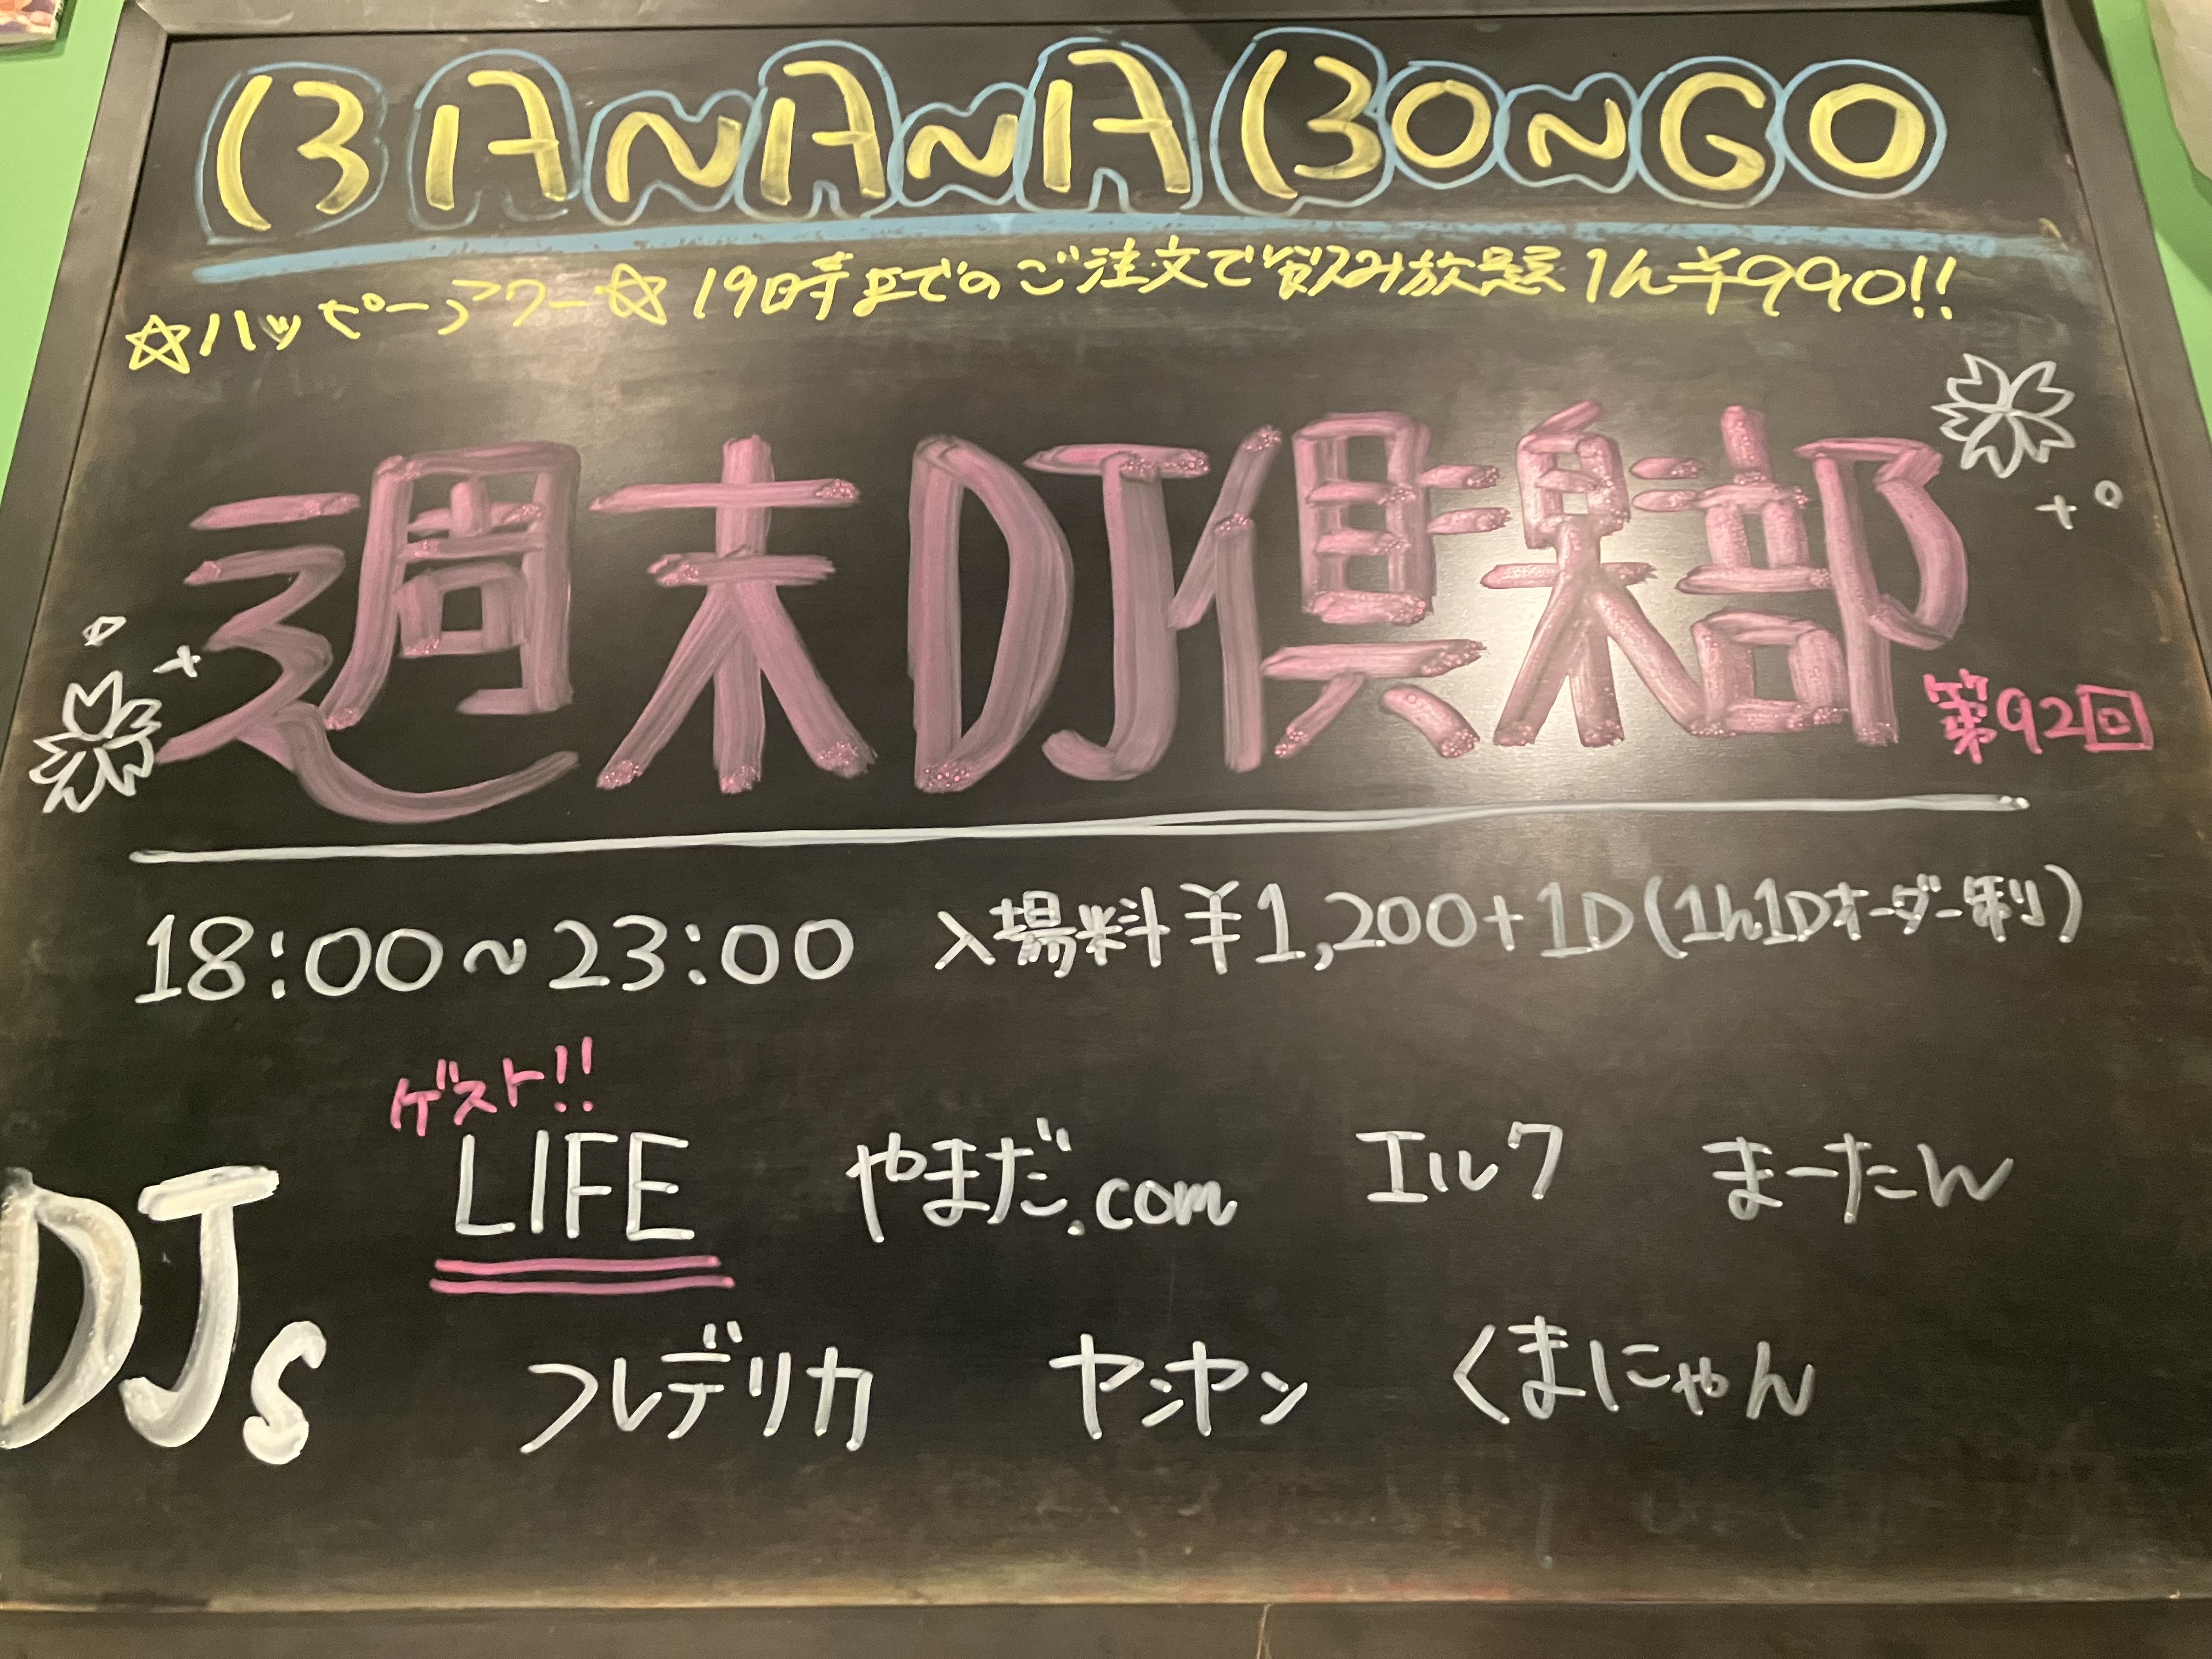 BANANA BONGO
☆ハッピーアワー☆ 19時までのご注文で飲み放題 1h ¥990!!
週末DJ倶楽部 第92回
18:00~23:00 入場料¥1,200+1D(1h1Dオーダー制)
ゲスト!!
LIFE やまだ.com エルク まーたん
DJs
フレデリカ ヤンヤン くまにゃん